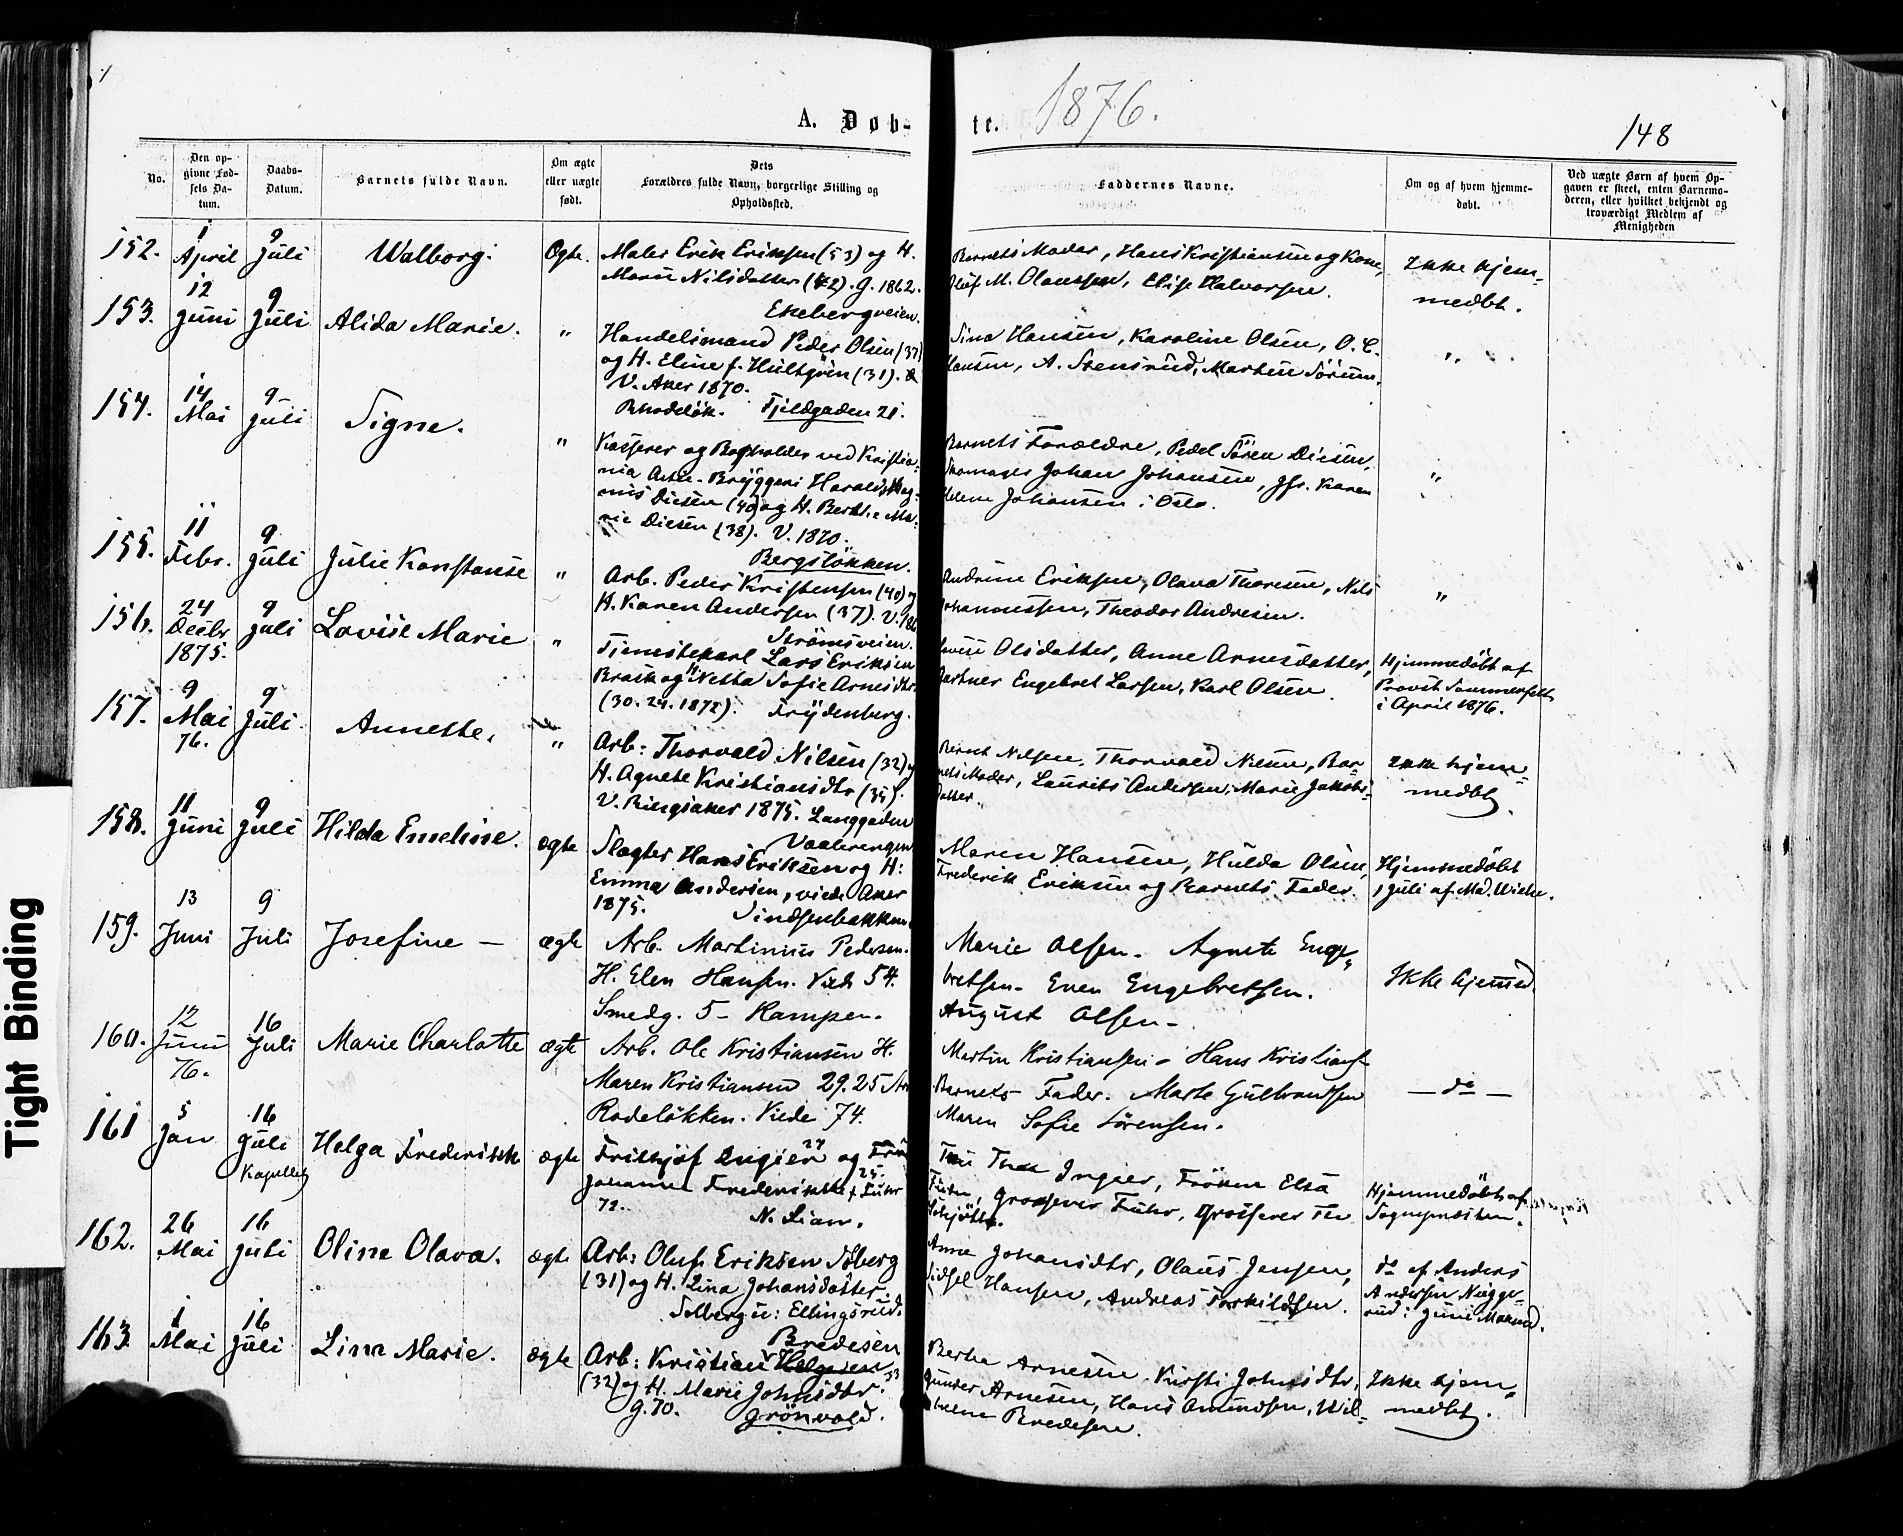 1876.
148
A. Døb-
te.
No.
Den op-
givne Fød-
sels Da-
tum.
Daabs-
Datum.
Barnets fulde Navn.
Om ægte
eller uægte
født.
Dets
Forældres fulde Navn, borgerlige Stilling og
Opholdssted.
Faddernes Navne.
Om og af hvem hjemme-
døbt.
Ved uægte Børn af hvem Op-
gaven er skeet, enten Barnemo-
deren, eller hvilket bekjendt og
troværdigt Medlem af
Menigheden
152. 1 April 9 Juli Walborg. Ægte.
Maler Erik Eriksen (53) og H.
Maria Nilsdatter (42). g. 1862.
Ekebergveien.
Barnets Moder, Hans Kristiansen og Kone,
Oluf M. Olaussen, Elise Halvorsen.
Ikke hjem-
medbt.
153. 12 Juni 9 Juli Alida Marie. "
Handelsmand Peder Olsen (37)
og H. Eline f. Hultgren (31).
V. Aker 1870.
Rhodeløk. Fjeldgaden 21.
Sina Hansen, Karoline Olsen, O. C.
Hansen, A. Stensrud, Marten Sørum.
"
154. 14 Mai 9 Juli Signe. "
Kasserer og Bogholder ved Kristia-
nia Actie-Bryggeri Harald Mag-
nus Diesen (40) og H. Berthe Ma-
rie Diesen (38). V. 1870.
Bergsløkken.
Barnets Forældre, Pedel Søren Diesen,
Skomager Johan Johansen, Jfr. Karen
Helene Johansen i Oslo.
"
155. 11 Febr. 9 Juli Julie Konstanse "
Arb. Peder Kristensen (40) og
H. Karen Andersen (37). V. 186
Strømsveien.
Andrine Eriksen, Olava Thoresen, Nils
Johannessen, Theodor Andresen.
"
156. 24 Decbr 1875. 9 Juli Lovise Marie "
Tjenestekarl Lars Eriksen
Brask og H. Netta Sofie Arnesdtr
(30. 24. 1872). Frydenberg.
Lovise Olsdatter, Anne Arnesdatter,
Gartner Engebret Larsen, Karl Olsen.
Hjemmedøbt af
Provst Sommerfelt
i April 1876.
157. 9 Mai 76. 9 Juli Annette. "
Arb: Thorvald Nilsen (32) og
H. Agnete Kristiansdtr (35).
V. Ringsaker 1875. Langgaden
Vaalerengen
Bernt Nilsen, Thorvald Nilsen, Bar-
nets Moder, Laurits Andersen, Marie Jakobs-
datter.
Ikke hjem-
medbt.
158. 11 Juni 9 Juli Hilda Emeline. ægte
Slagter Hans Eriksen og H:
Emma Andersen, viede Aker
1875. Sindsenbakken
Maren Hansen, Hulda Olsen,
Frederik Eriksen og Barnets Fader.
Hjemmedøbt
1 Juli af Md. Wiche.
159. 13 Juni 9 Juli Josefine – ægte
Arb. Martinius Pedersen.
H. Elen Hansen. Viede 54.
Smedg. 5 – Kampen.
Marie Olsen. Agnete Enge-
bretsen. Even Engebretsen.
August Olsen –
Ikke hjemmd.
160. 12 Juni 76. 16 Juli Marie Charlotte ægte
Arb. Ole Kristiansen H.
Maren Kristiansen 29. 25 Aar
Rodeløkken. Viede 74.
Martin Kristiansen – Hans Kristians
Barnets Fader. Marte Gulbrandsen
Maren Sofie Sørensen.
– do –
161 5 Jan 16 Juli Kapellet Helga Frederikke ægte
Frithjof Ingier 27 og Fru
Johanne Frederikke f. Fuhr 25
72. N. Lian.
Fru Thea Ingier, Frøken Elsa
Fuhr, Grosserer Fuhr, Grosserer Th
Schjøtt.
Hjemmedøbt af
Sognepresten.
162. 26 Mai 16 Juli Oline Olava. ægte
Arb: Oluf Eriksen Solberg
(31) og H. Lina Johansdatter.
Solberg u: Ellingsrud.
Anne Johansdtr, Olaus Jensen,
Sidsel Hansen, Andreas Torkildsen.
do af Anders
Andersen Nygge-
rud i Juni Maaned.
163 1 Mai 16 Juli Lina Marie. ægte
Bredesen
Arb: Kristian Helgesen
(32) og H. Marie Johnsdtr. 33
g. 70. Grønvold.
Berthe Arnesen. Kirsti Johnsdtr,
Gunder Arnesen, Hans Amundsen, Wil-
helm Bredesen.
Ikke hjem-
medbt.
Tight Binding